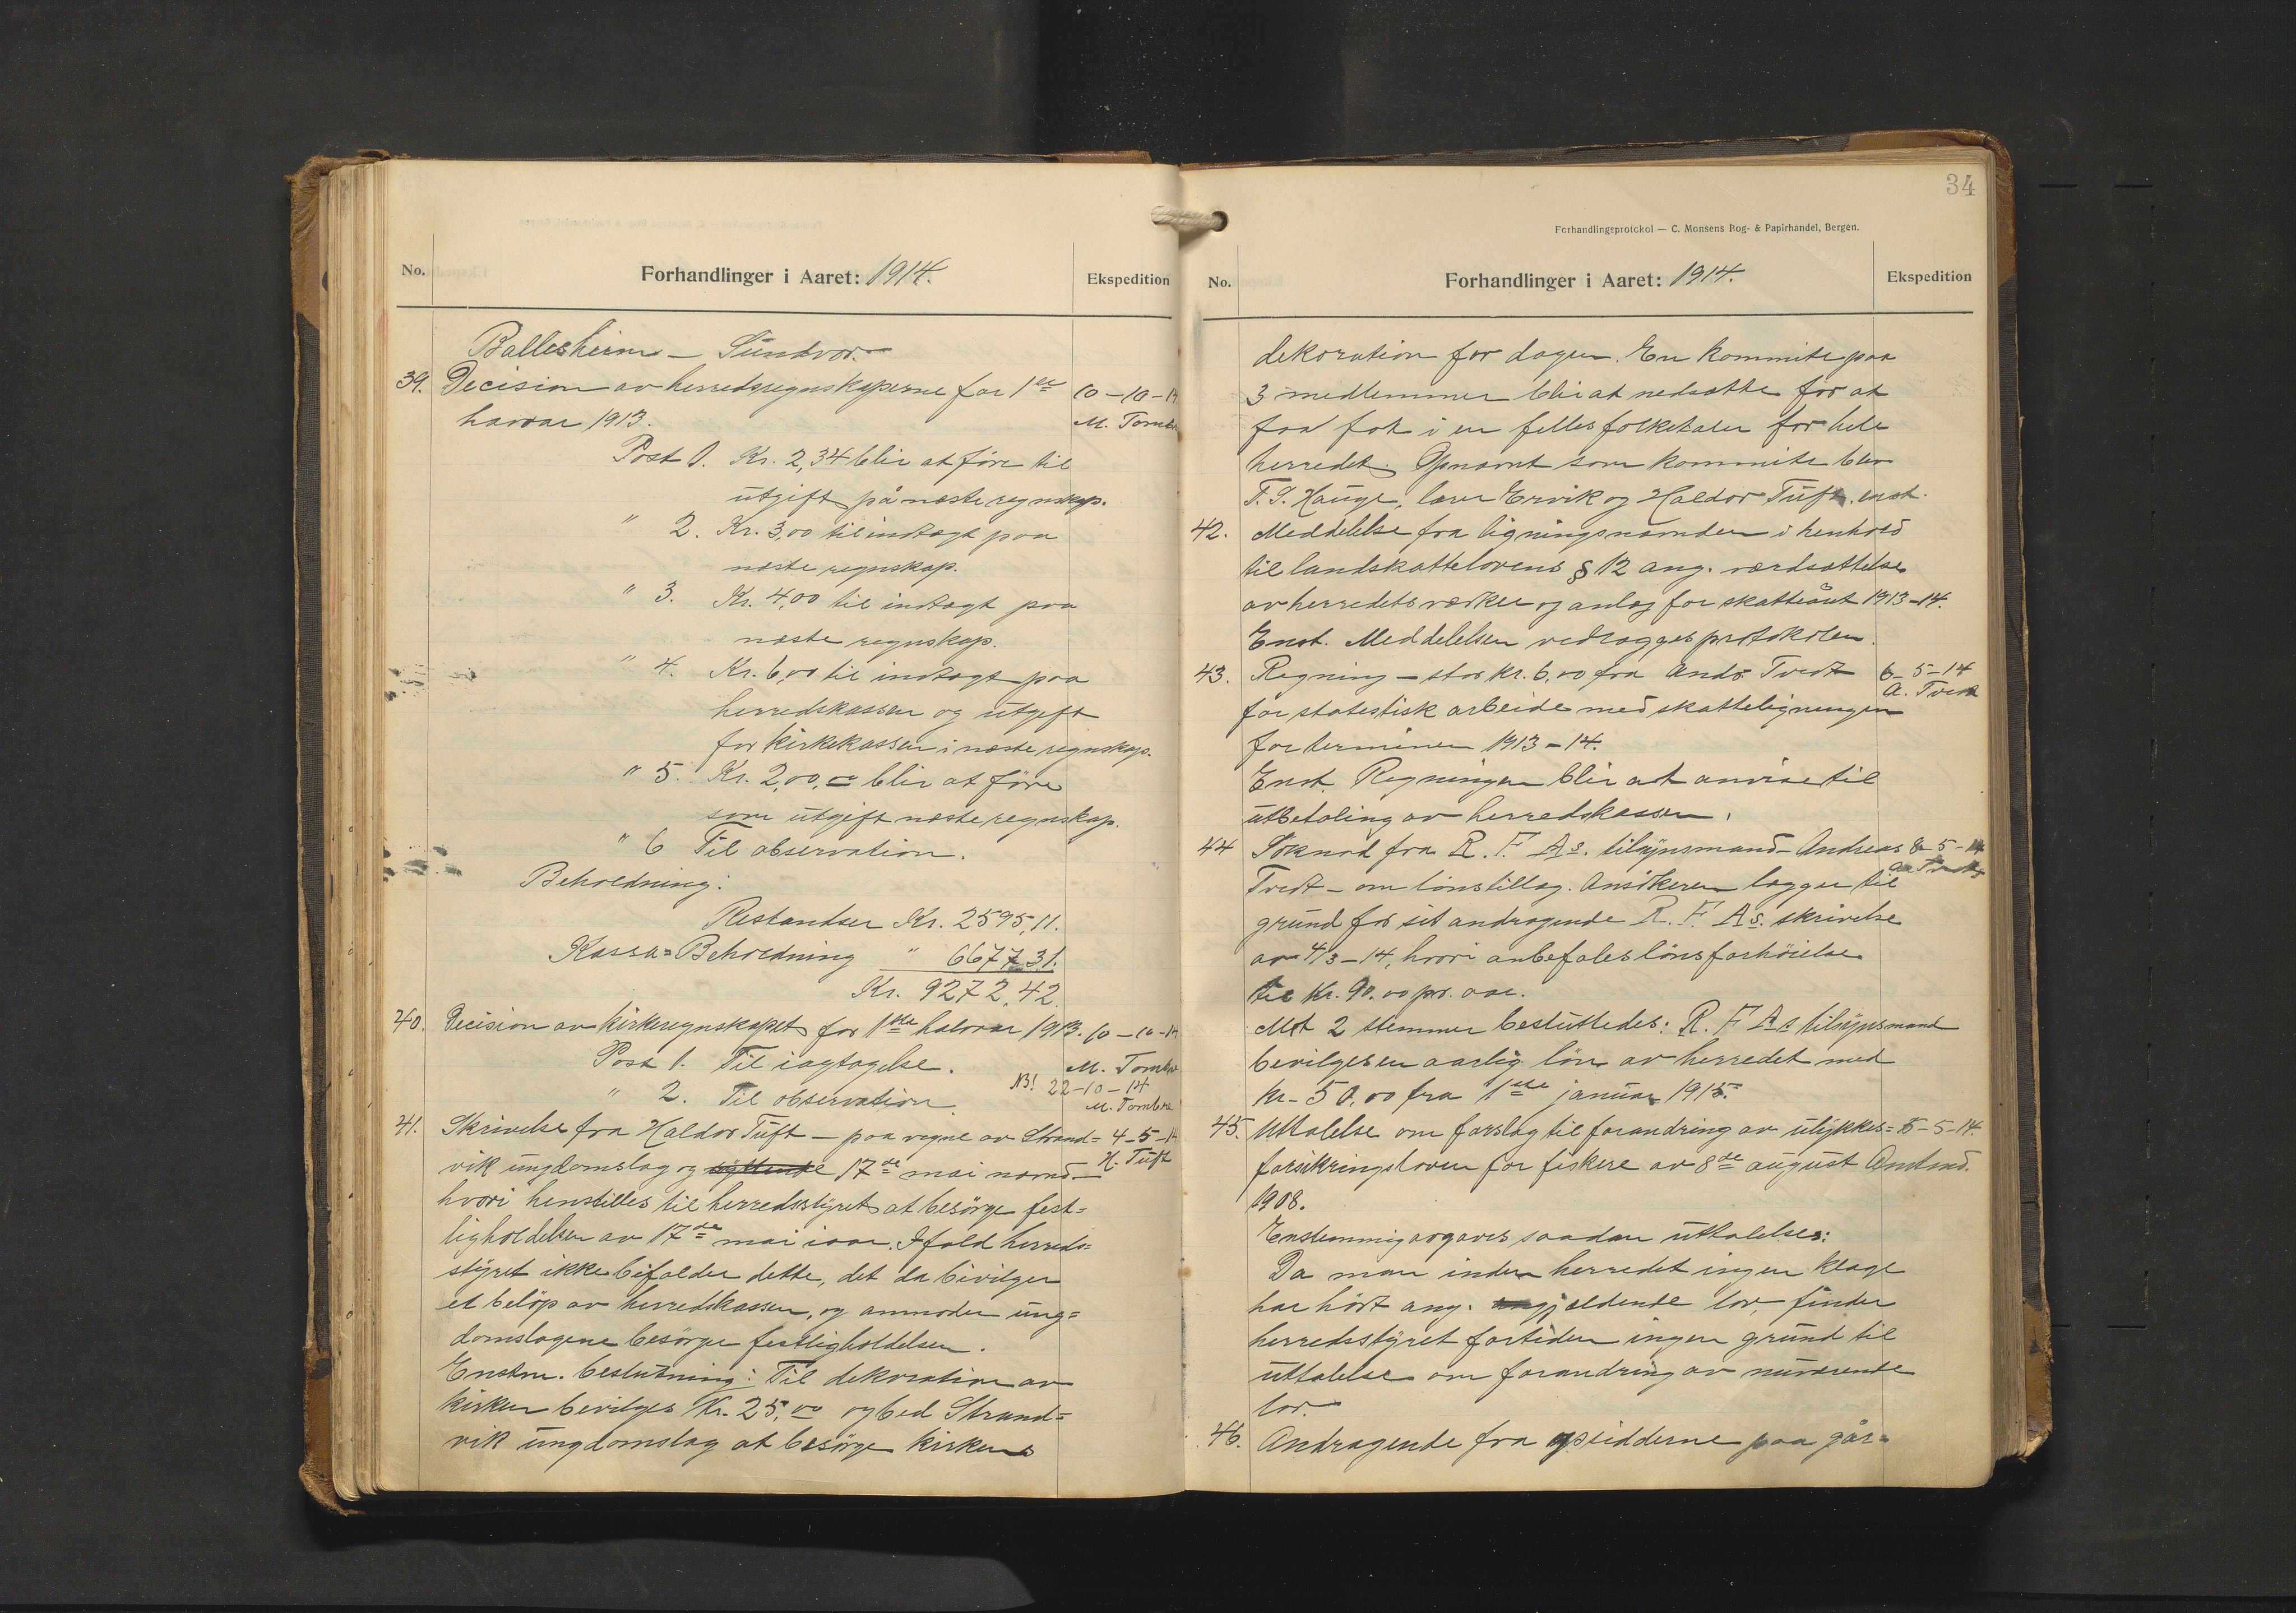 No.
Forhandlinger i Aaret: 1914.
Ekspedition
Ballesheim - Sundvor.
39. Decision av herredsregnskaperne for 1ste 10-10-14
havaar 1913. M. Tombre
Post 1. Kr. 2,34 blir at före til
utgift på næste regnskap.
" 2. Kr. 3,00 til indtægt paa
næste regnskap.
" 3. Kr. 4,00 til indtægt paa
næste regnskap.
" 4. Kr. 6,00 til indtægt paa
herredskassen og utgift
for kirkekassen i næste regnskap.
" 5. Kr. 2,00, blir at före
som utgift næste regnskap.
" 6 Til observation.
Beholdning:
Restandser Kr. 2595,11.
Kassa=Beholdning " 6677,31.
Kr. 9272,42.
40. Decision av kirkeregnskapet for 1ste halvaar 1913. 10-10-14
Post 1. Til iagtagelse. M. Tombre
" 2. Til observation. NB! 22-10-14
M. Tombre
41. Skrivelse fra Haldor Tuft - paa vegne av Strand= 4-5-14
vik ungdomslag og syttende 17de mai nævnd - H. Tuft
hvori henstilles til herredsstyret at besörge fest=
ligholdelsen av 17de mai iaar. Ifald herreds=
styret ikke bifalder dette, det da bevilger
et belöp av herredskassen, og anmoder ung=
domslagene besörge festligholdelsen.
Enstm. beslutning: Til dekoration av
kirken bevilges Kr. 25,00 og bed Strand=
vik ungdomslag at besörge kirkens
34
Forhandlingsprotokol — C. Monsens Bog- & Papirhandel, Bergen.
No.
Forhandlinger i Aaret: 1914.
Ekspedition
dekoration for dagen. En kommite paa
3 medlemmer blir at nedsætte for at
faa fat i en felles folketaler for hele
herredet. Opnævnt som kommite blev
T. S. Hauge, lærer Ervik og Haldor Tuft. enst.
42. Meddelelse fra ligningsnævnden i henhold
til landskattelovens § 12 ang. værdsættelse
av herredets værker og anlæg for skatteåret 1913-14.
Enst. Meddelelsen vedlægges protokolen.
43. Regning - stor kr. 6,00 fra Ands Tvedt 6-5-14
for statestisk arbeide med skatteligningen A. Tvedt
for terminen 1913-14.
Enst. Regningen blir at anvise til
utbetaling av herredskassen.
44 Söknad fra R. F. As. tilsynsmand - Andreas 8-5-14
Tvedt - om lönstillæg. Ansökeren lægger til A. Tvedt
grund for sit andragende R. F. As. skrivelse
av 4/3-14, hvori anbefales lönsforhöielse
til kr. 90,00 pr. aar.
Mot 2 stemmer besluttedes: R. F. As tilsynsmand
bevilges en aarlig lön av herredet med
kr. 50,00 fra 1ste januar 1915.
45. Uttalelse om forslag til forandring av ulykkes= 5-5-14.
forsikringsloven for fiskere av 8de august Amtmd.
1908.
Enstemmig avgaves saadan uttalelse:
Da man inden herredet ingen klage
har hört ang. gjældende lov, finder
herredsstyret fortiden ingen grund til
uttalelse om forandring av nuværende
lov.
46. Andragende fra opsidderne paa går=